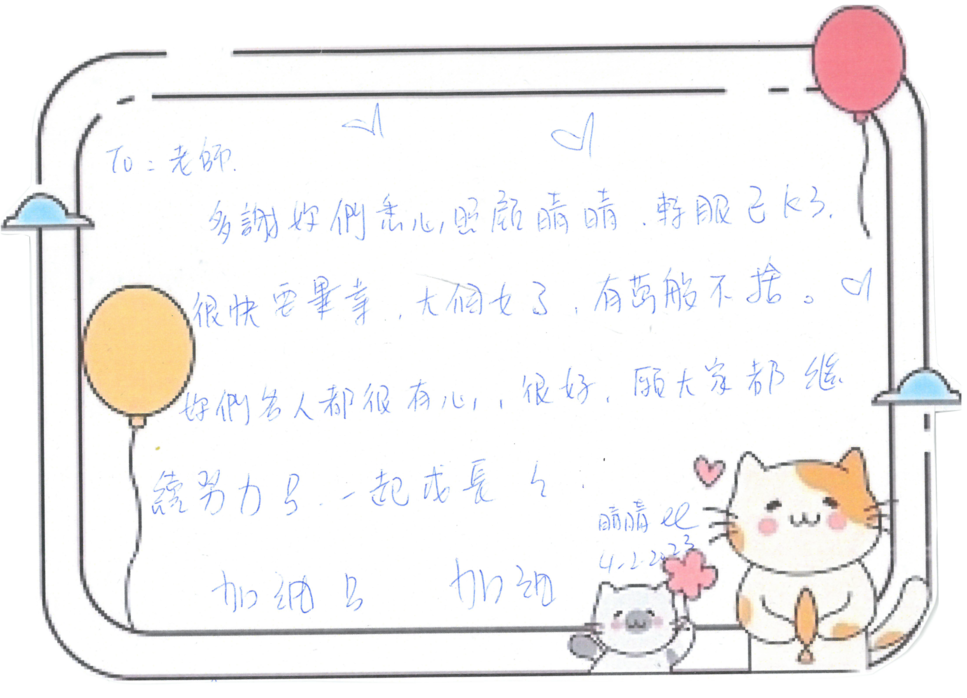 To：老師.
多謝妳們悉心照顧晴晴，轉眼已K3，
很快要畢業，大個女了，有萬般不捨。
妳們各人都很有心，很好，願大家都繼
續努力，一起成長
晴晴
4.2.2023
加油 加油